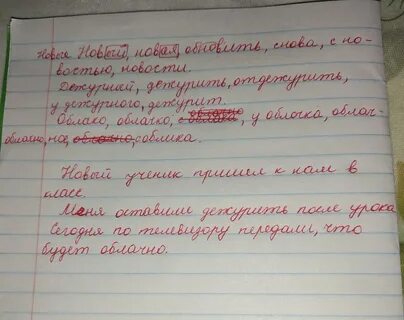 Новые Новый, новая, обновить, снова, с но-
востью, новости.
Дежурией, дежурить, отдежурить,
у дежурного, дежурит.
Облако, облачко, у облачка, облач-
облачно, на, соблика.
Новый ученик пришел к нам в
класс.
Меня оставили дежурить после урока
Сегодня по телевизору передали, что
будет облачно.